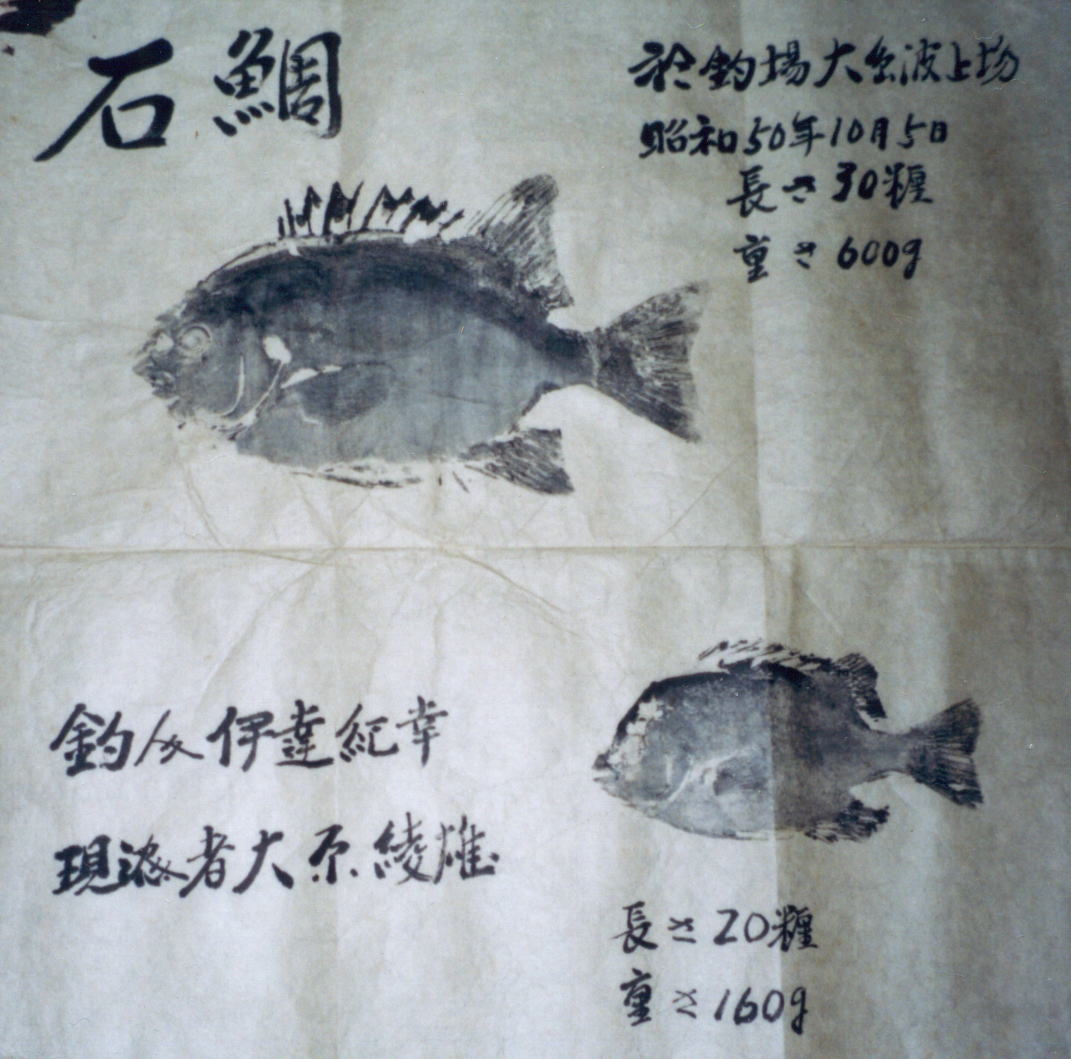 石鯛
於釣場大糸波止場
昭和50年10月5日
長さ30糎
重さ600g
釣人伊達紀幸
現認者大原綾雄
長さ20糎
重さ160g